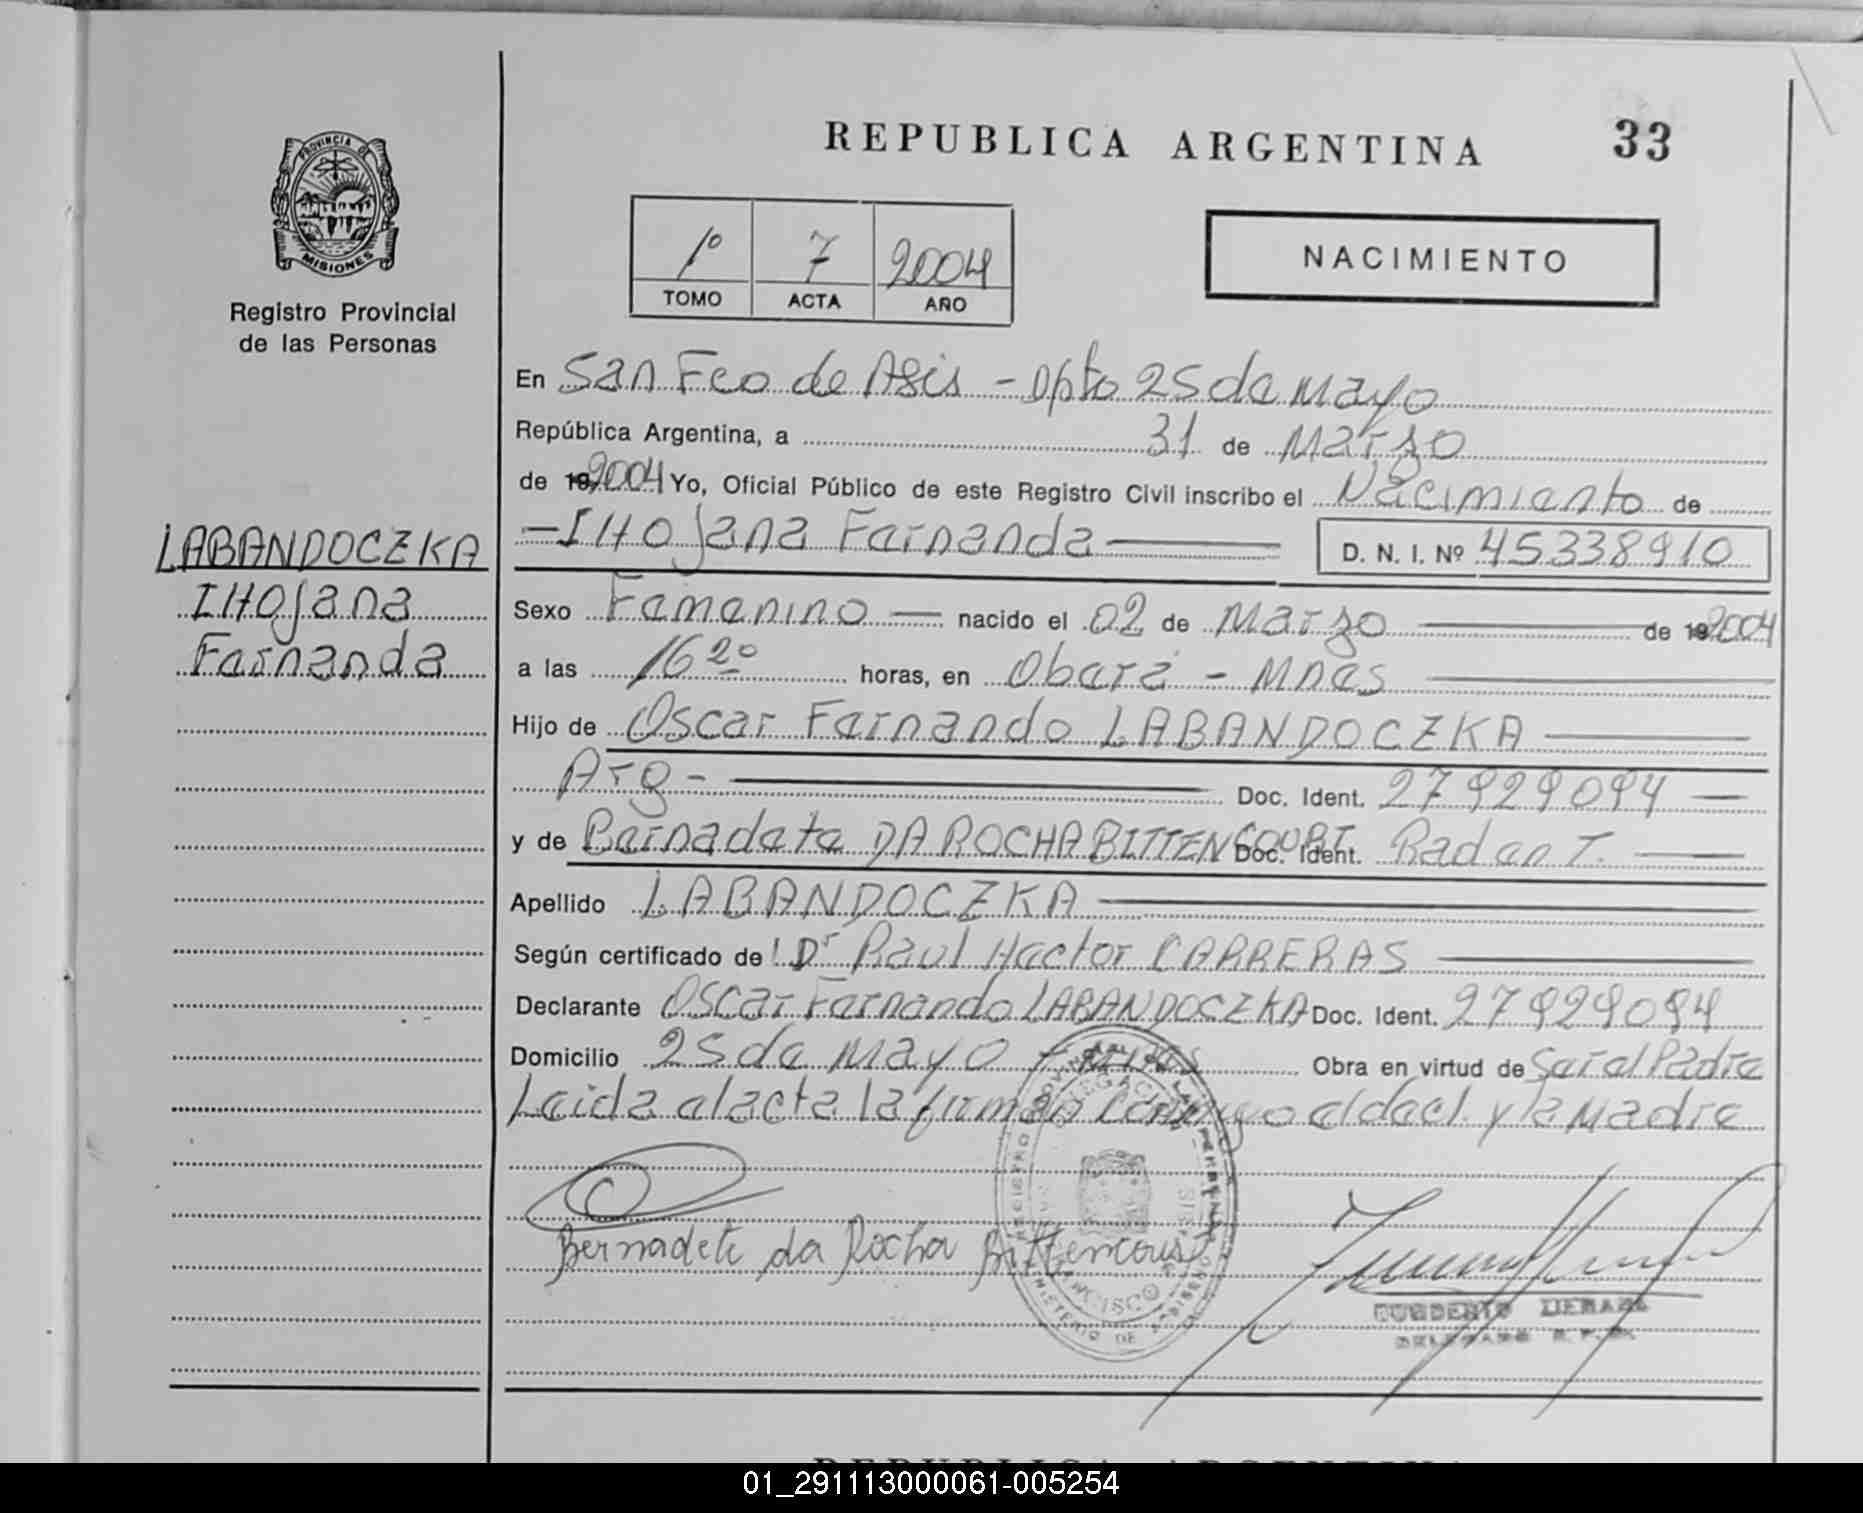 REPUBLICA ARGENTINA
33
PROVINCIA DE
MISIONES
Registro Provincial
de las Personas
1º 7 2004
TOMO ACTA AÑO
NACIMIENTO
En San Fco de Asis - Dpto 25 de Mayo
República Argentina, a 31 de Marzo
de 192004 Yo, Oficial Público de este Registro Civil inscribo el Nacimiento de
- IHOjana Fernanda
D. N. I. Nº 45338910
LABANDOCZKA
IHOjana
Fernanda
Sexo Femenino nacido el 02 de Marzo de 192004
a las 16 20 horas, en Oberá - Mnes
Hijo de Oscar Fernando LABANDOCZKA
Arg - Doc. Ident. 27929094
y de Bernadete DA ROCHA BITTENCOURT Doc. Ident. Rad en T.
Apellido LABANDOCZKA
Según certificado de Dr Raul Hector CARRERAS
Declarante Oscar Fernando LABANDOCZKA Doc. Ident. 27929094
Domicilio 25 de Mayo - Mnes Obra en virtud de Ser el Padre
Leida el acta la firman conmigo el decl. y la Madre
Bernadete da Rocha Bittencourt
REPUBLICA ARGENTINA
01_291113000061-005254